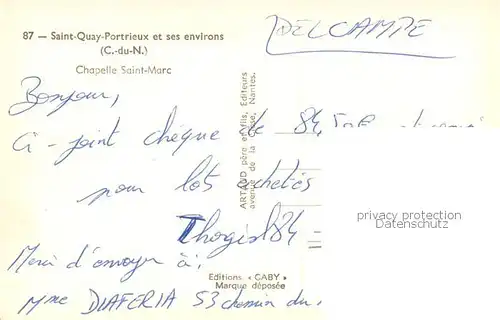 87 — Saint-Quay-Portrieux et ses environs
(C.-du-N.)
Chapelle Saint-Marc
DELCAMPE
Bonjour,
Ci-joint chèque de 84,50E
pour lots achetés
Merci d'envoyer à :
Mme DIAFERIA 53 chemin du
ARTAUD père et fils, Editeurs
avenue de la Nantes.
privacy protection
Datenschutz
Editions « GABY »
Marque déposée